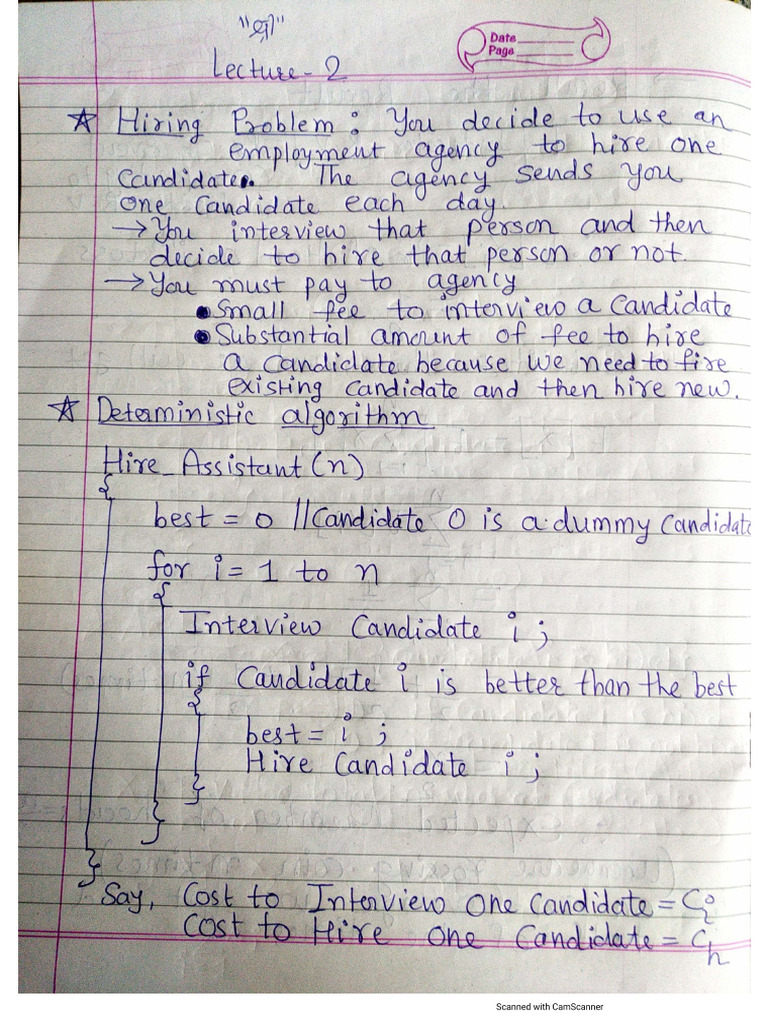 "श्री"
Date
Page
Lecture - 2
☆ Hiring Problem : You decide to use an
employment agency to hire one
candidate. The agency sends you
one candidate each day.
→ You interview that person and then
decide to hire that person or not.
→ You must pay to agency
• Small fee to interview a candidate
• Substantial amount of fee to hire
a candidate because we need to fire
existing candidate and then hire new.
☆ Deterministic algorithm
Hire_Assistant (n)
{
best = 0 //Candidate 0 is a dummy candidate
for i = 1 to n
{
Interview Candidate i ;
if Candidate i is better than the best
{
best = i ;
Hire Candidate i ;
}
}
}
Say, Cost to Interview One Candidate = Ci
Cost to Hire one Candidate = Ch
Scanned with CamScanner